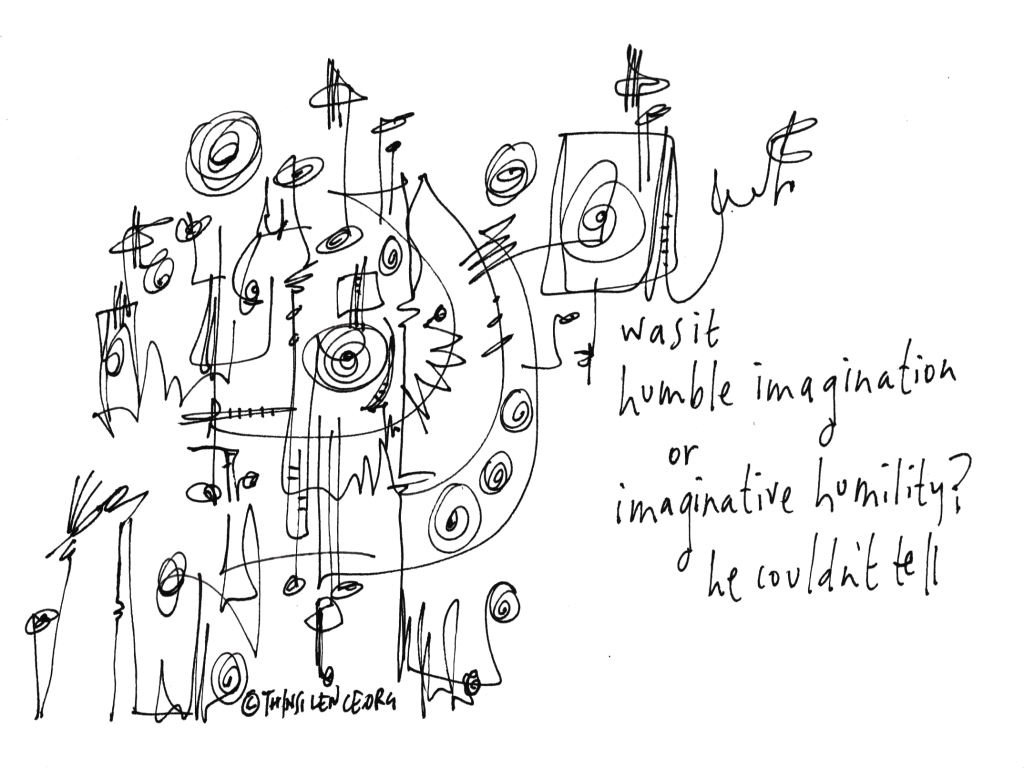 was it
humble imagination
or
imaginative humility?
he couldn't tell
©THINSILENCE.ORG